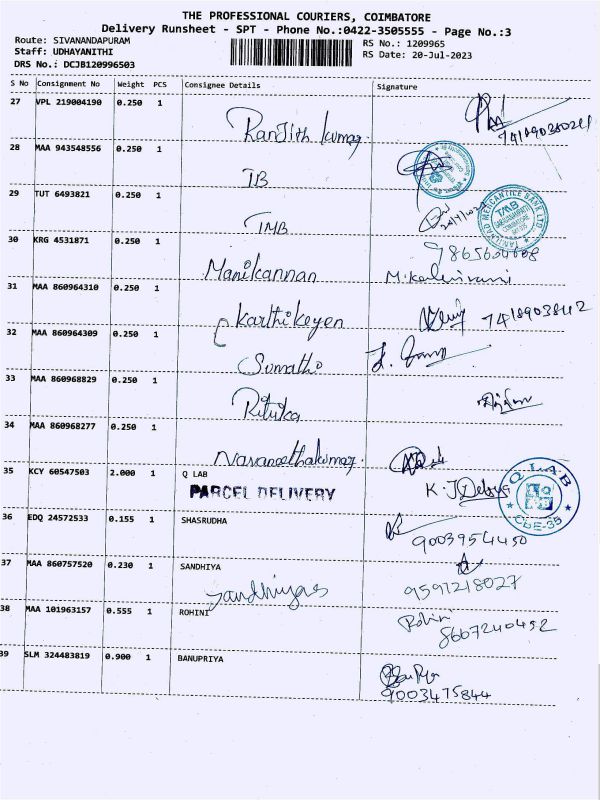 THE PROFESSIONAL COURIERS, COIMBATORE
Delivery Runsheet - SPT - Phone No.:0422-3505555 - Page No.:3
Route: SIVANANDAPURAM RS No.: 1209965
Staff: UDHAYANITHI RS Date: 20-Jul-2023
DRS No.: DCJB120996503
S No Consignment No Weight PCS Consignee Details Signature
27 VPL 219004190 0.250 1
Ranjith kumar
28 MAA 943548556 0.250 1
IB
29 TUT 6493821 0.250 1
TMB
TAMILNAD MERCANTILE BANK LTD
TMB
30 KRG 4531871 0.250 1
Manikannan
31 MAA 860964310 0.250 1
Karthikeyen
32 MAA 860964309 0.250 1
Sumathi
33 MAA 860968829 0.250 1
Rituka
34 MAA 860968277 0.250 1
Navaneethakumar
35 KCY 60547503 2.000 1 Q LAB
PARCEL DELIVERY
Q LAB
CBE-35
36 EDQ 24572533 0.155 1 SHASRUDHA
9003954450
37 MAA 860757520 0.230 1 SANDHIYA
9591218027
38 MAA 101963157 0.555 1 ROHINI
Rohini
8667240492
39 SLM 324483819 0.900 1 BANUPRIYA
9003475844